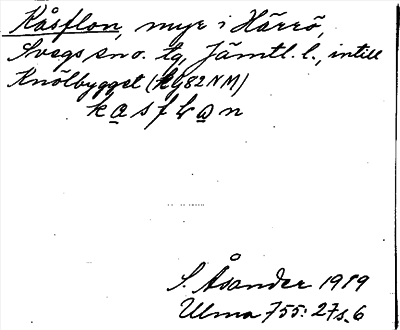 Kåsflon, myr i Härrö,
Svegs sn o. tg, Jämtl. l., intill
Knölbygget (kg82NM)
kasflan
S. Åsander 1989
Ulma 755: 27 s. 6